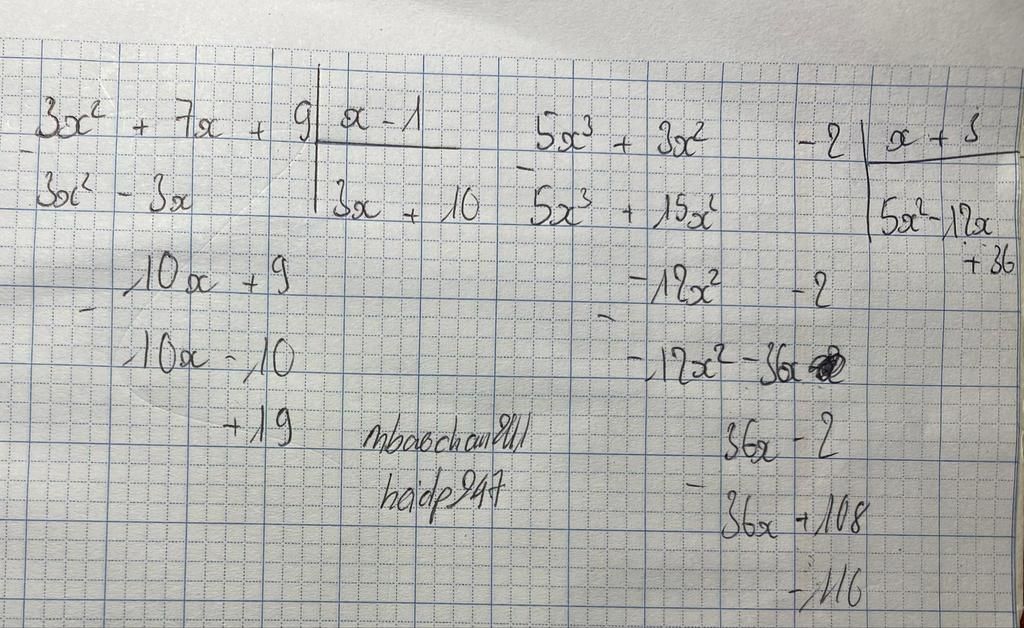 3x² + 7x + 9 | x - 1
- 3x² - 3x | 3x + 10
10x + 9
- 10x - 10
+ 19
haidp947
5x³ + 3x² - 2 | x + 3
- 5x³ + 15x² | 5x² - 12x
+ 36
- 12x² - 2
- - 12x² - 36x
36x - 2
- 36x + 108
- 110